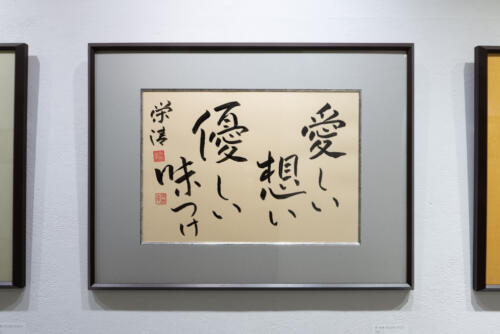 愛しい
想い
優しい
味つけ
栄清